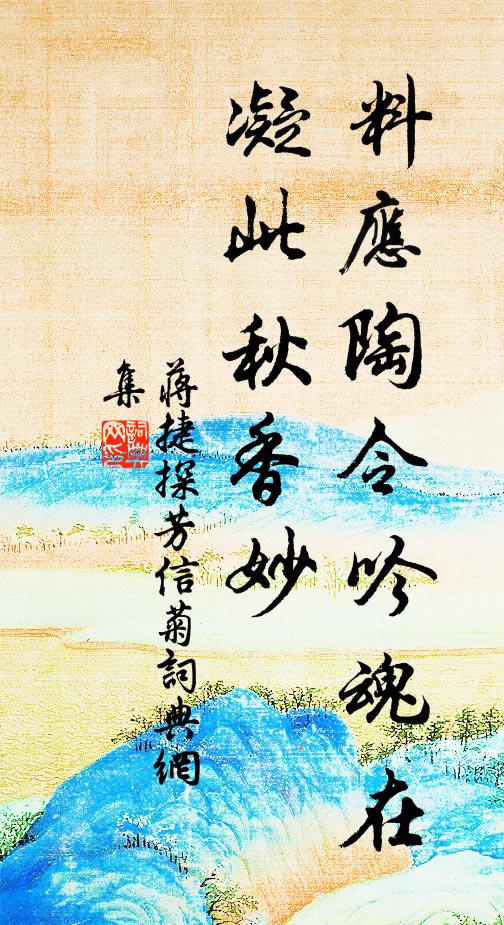 料應陶令吟魂在
凝此秋香妙
蔣捷探芳信菊詞典網
集